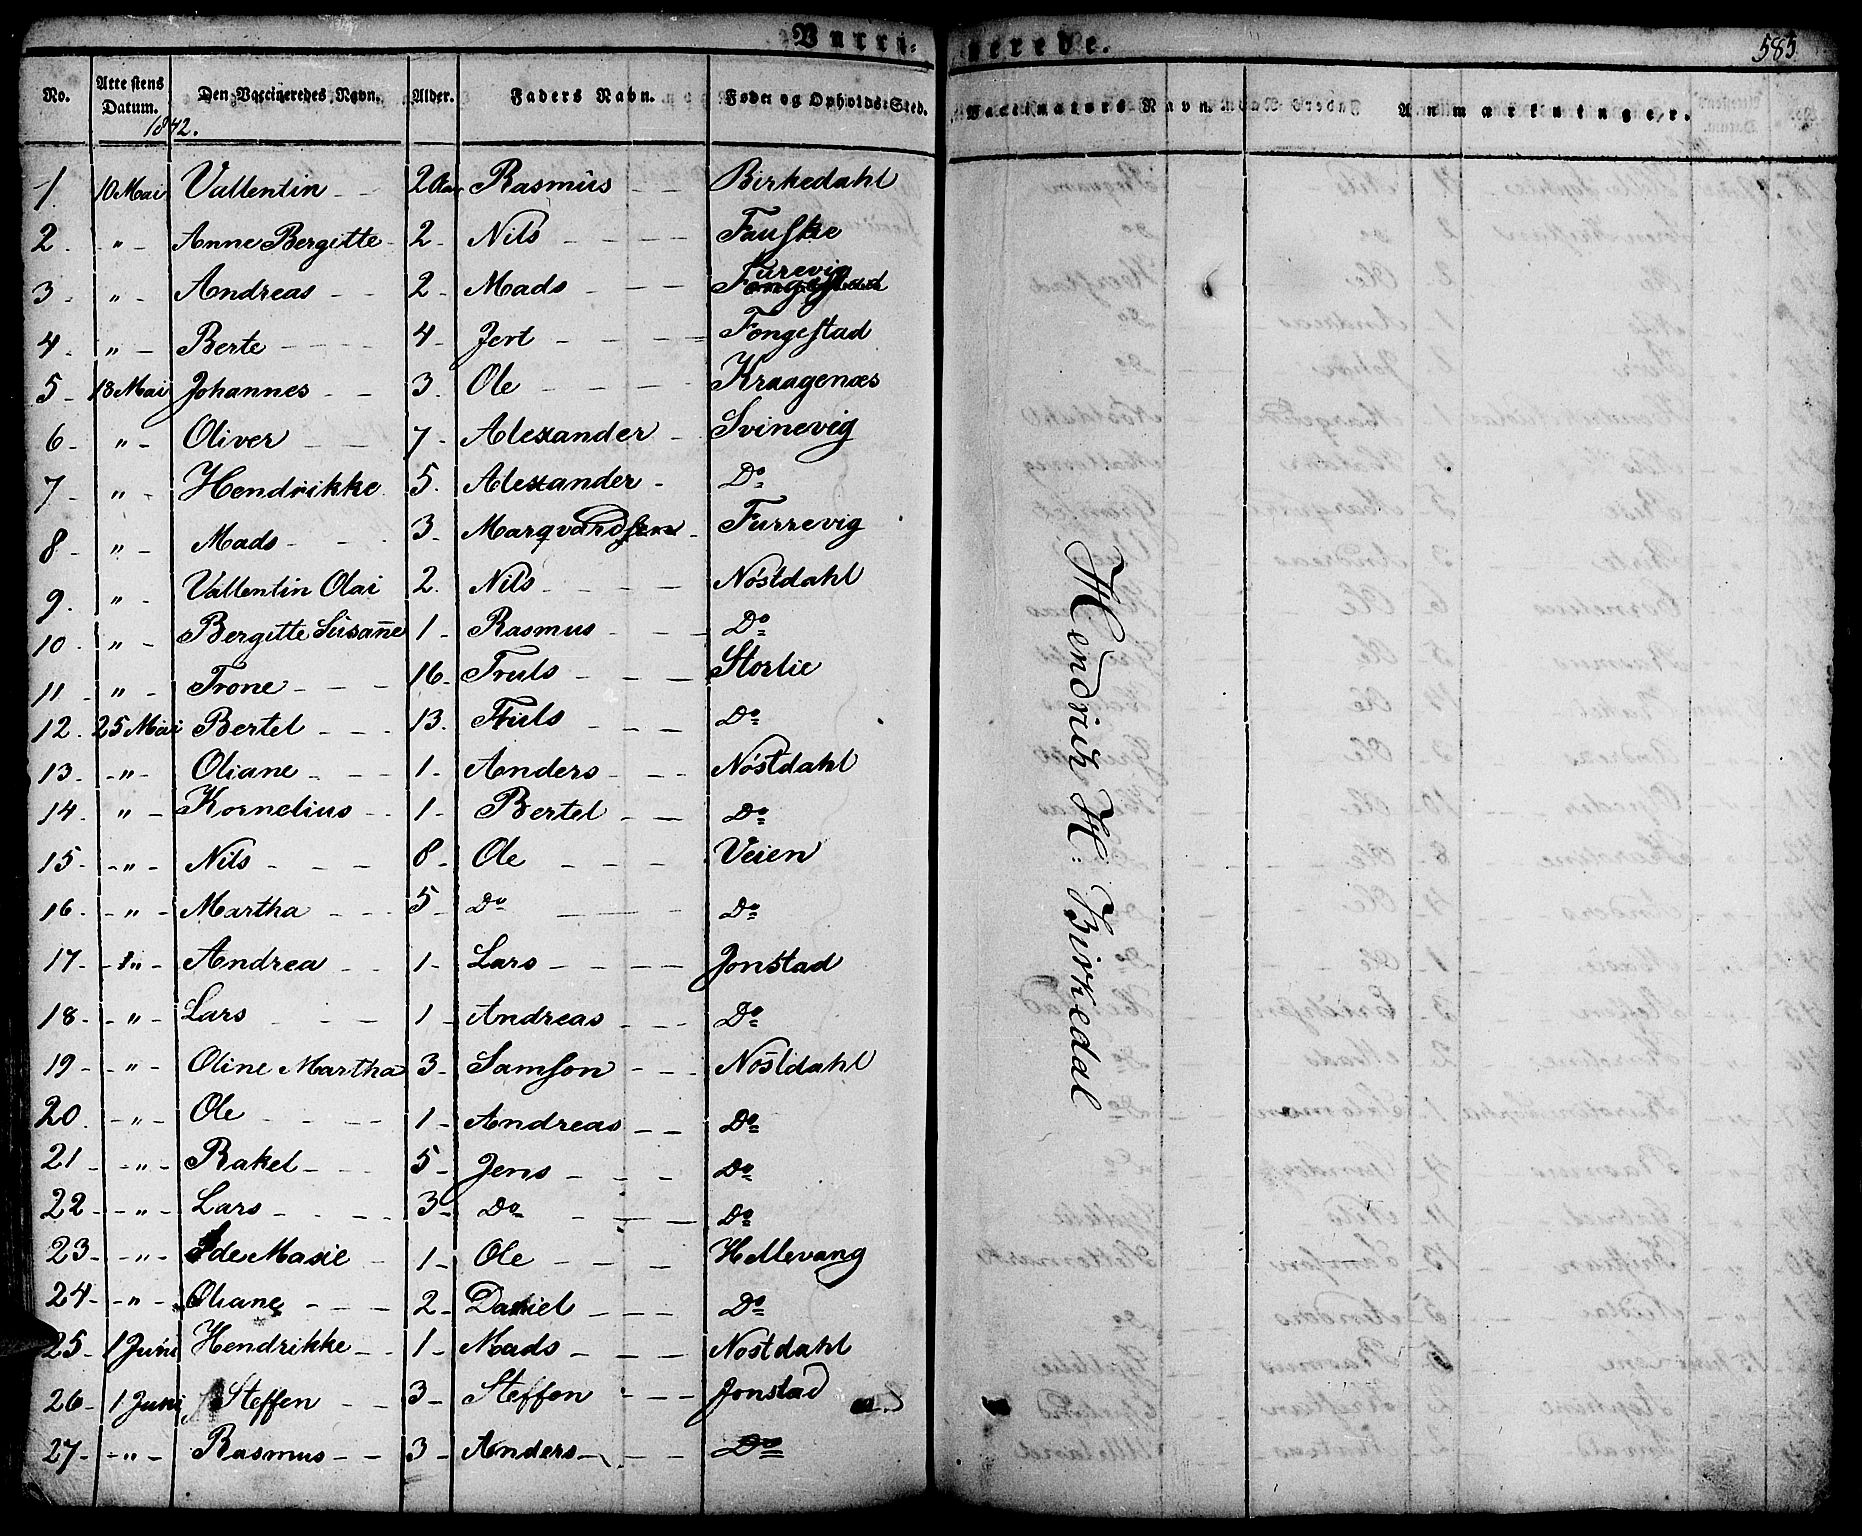 Vacci-
nerede.
585
No. Attestens Datum. Den Vaccineredes Navn. Alder. Faders Navn. Føde- og Opholds-Sted. Vaccinators Navn. Anmærkninger.
1842.
1. 10 Mai Vallentin 2 Aar Rasmus Birkedahl
2. " Anne Bergitte 2 Nils Fauske
Furevig
3. " Andreas 2 Mads Fongestad
4. " Berte 4 Jert Fongestad
5 18 Mai Johannes 3. Ole Kraagenæs
6. " Oliver 7 Alexander Svinevig
7. " Hendrikke 5. Alexander Do
8. " Mads 3 Marqvardsen Furrevig
9. " Vallentin Olai 2. Nils Nöstdahl
10. " Bergitte Susan̄e 1 Rasmus Do
11. " Trone 16 Truls Storlie
12. 25 Mai Bertel 13. Truls Do
13. " Oliane 1. Anders Nöstdahl
14. " Kornelius 1. Bertel Do
15. " Nils 8 Ole Veien
16. " Martha 5. Do Do
17. " Andrea 1 Lars Jonstad
18. " Lars 1 Andreas Do
19. " Oline Martha 3 Samson Nöstdahl
20. " Ole 1 Andreas Do
21 " Rakel 5 Jens Do
22 " Lars 3 Do Do
23 " Ide Marie 1 Ole Hellevang
24 " Oliane 2 Daniel Do
25 1 Juni Hendrikke 1 Mads Nostdahl
26 1 Juni Steffen 3 Steffen Jonstad
27 " Rasmus 3 Anders Do
Hendrich H: Birkedal